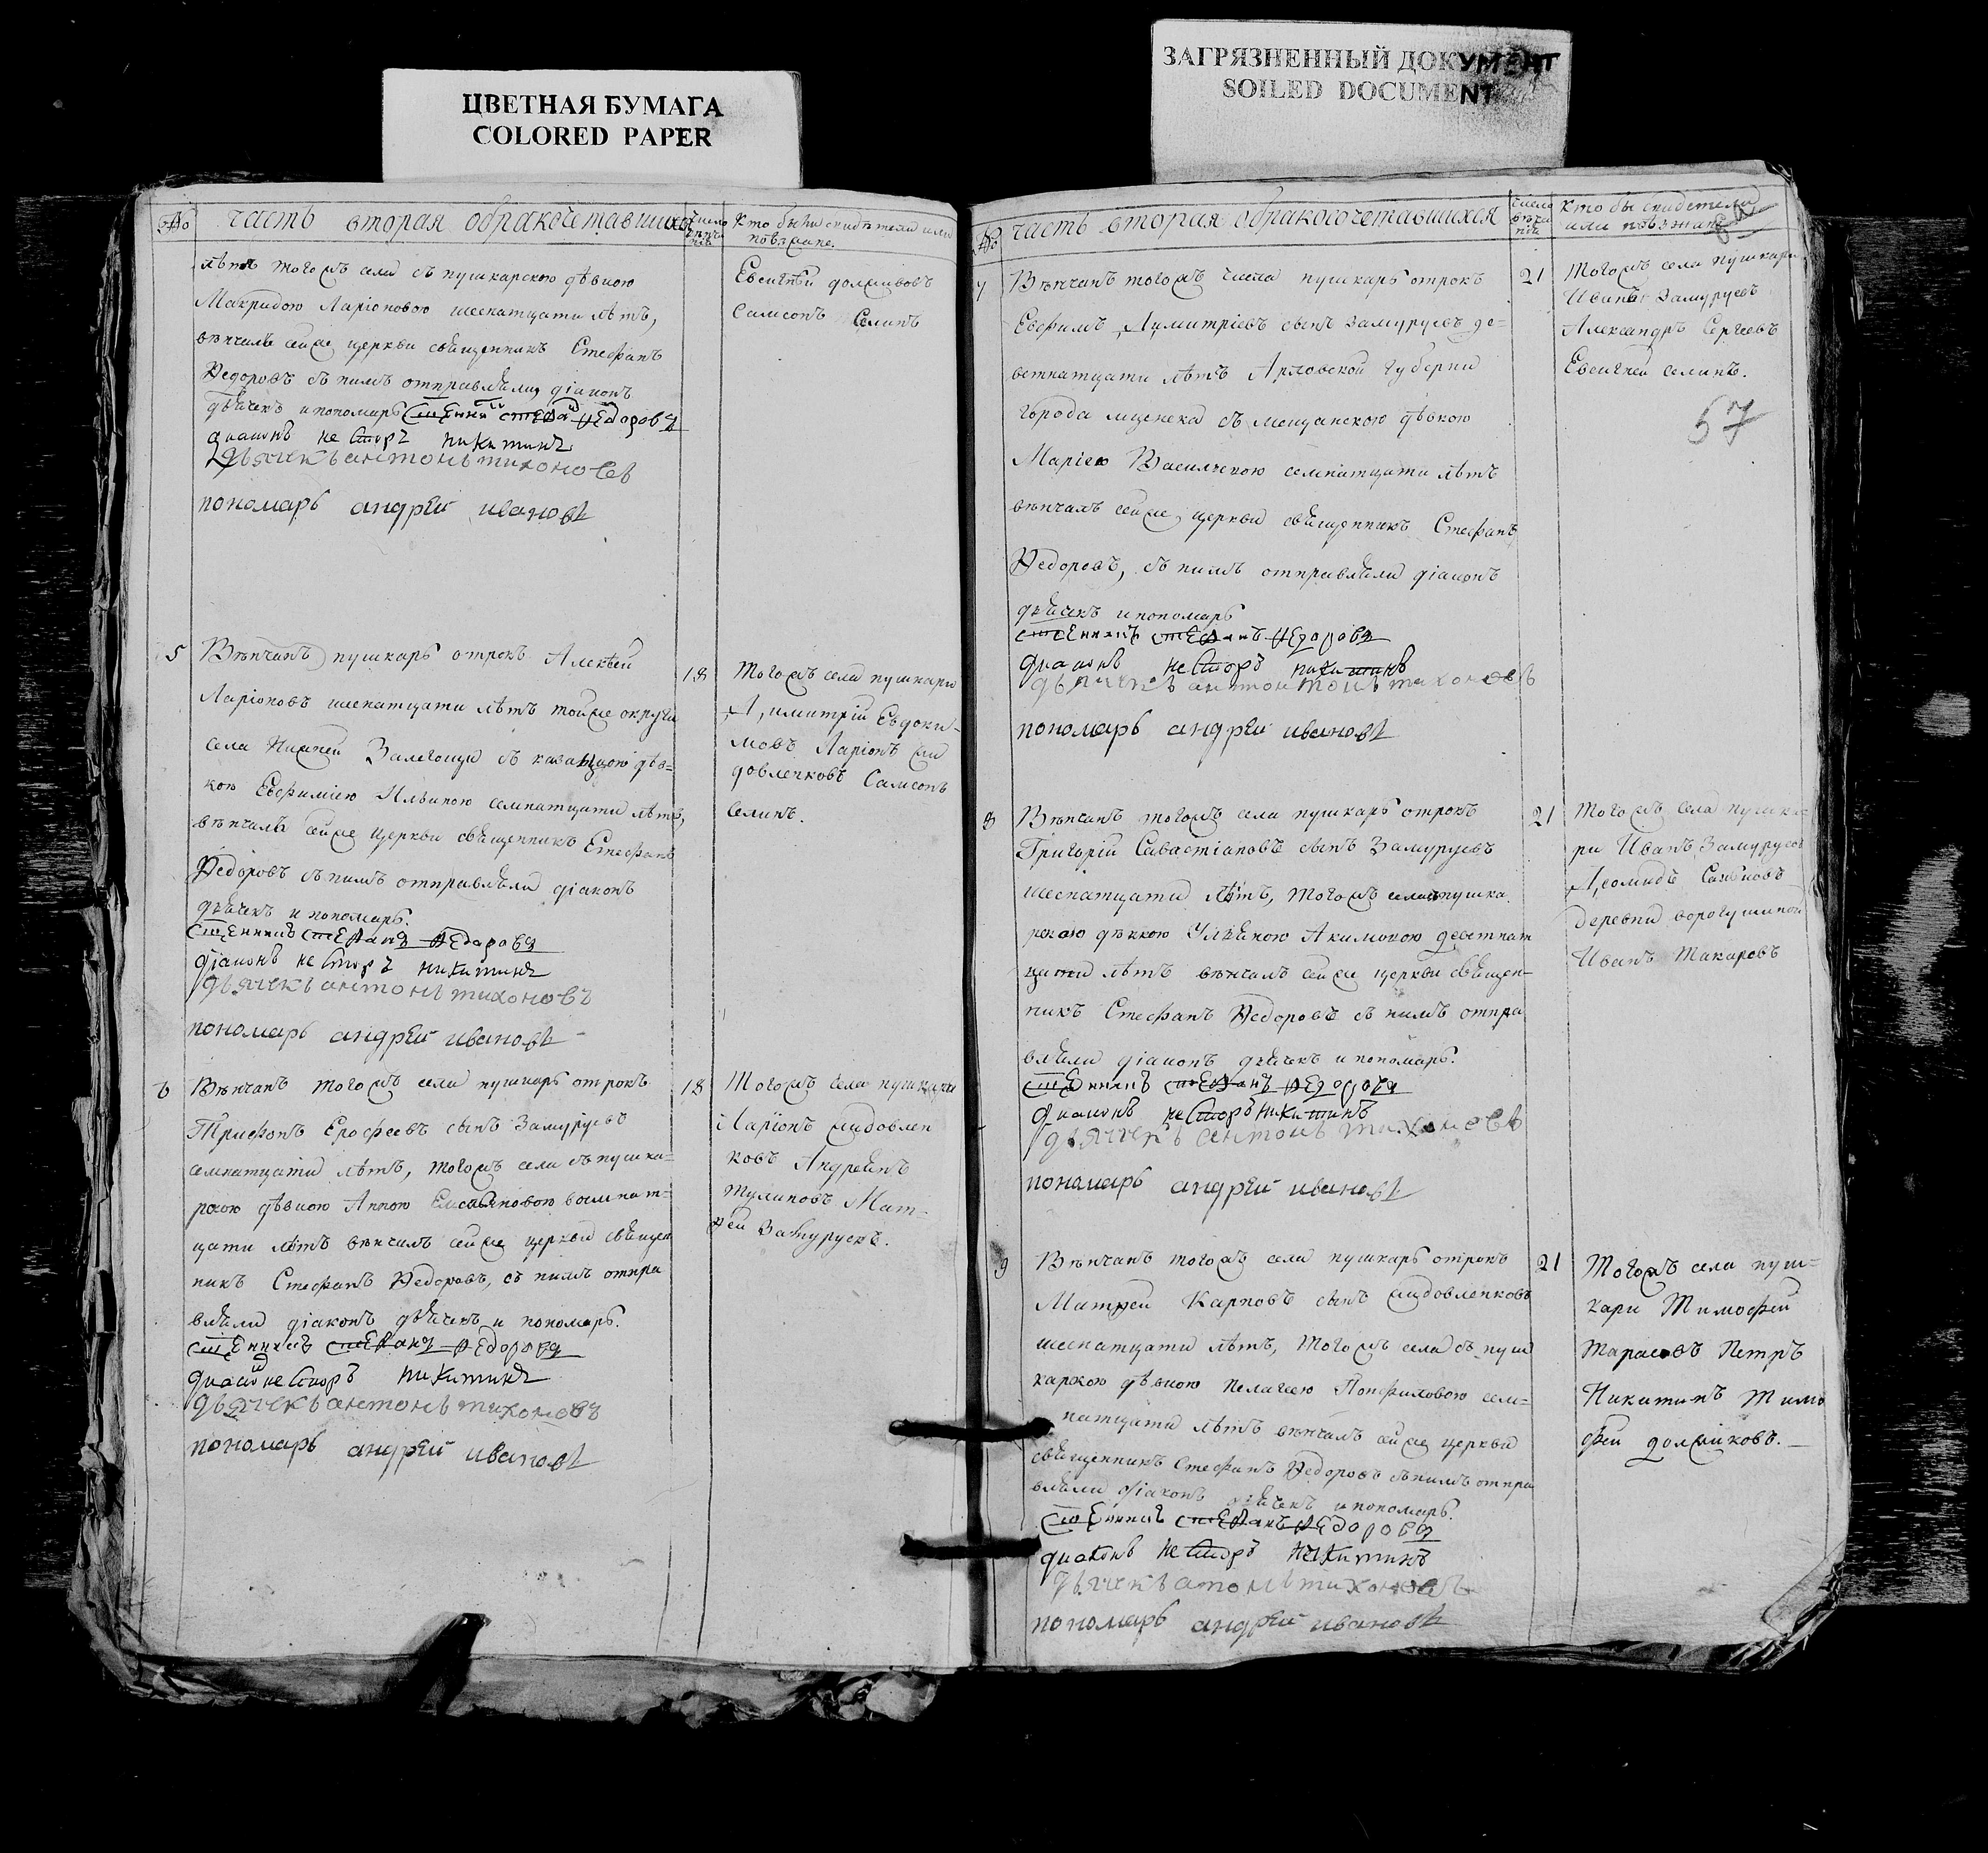 ЦВЕТНАЯ БУМАГА
COLORED PAPER
ЗАГРЯЗНЕННЫЙ ДОКУМЕНТ
SOILED DOCUMENT
№ часть вторая обракочетавшихся
Число вѣнчанія
Кто были свидѣтели или поѣзжане
лѣтъ тогожъ села съ пушкарскою дѣвкою
Макридою Ларіоновою шеснатцати лѣтъ,
вѣнчалъ сейже церкви священникъ Стефанъ
Ѳедоровъ съ нимъ отправляли діаконъ
дьячекъ и пономарь священникъ стеѳанъ ѳедоровъ
диаконъ несторъ никитинъ
дьячекъ антонъ тихоновъ
пономарь андрей ивановъ
Евсигней
Самсонъ Селинъ
5 Вѣнчанъ пушкарь отрокъ Алексѣй
Ларіоновъ шеснатцати лѣтъ тойже округи
села Нижней Залегощи съ дѣв=
кою Евфиміею Ильиною семнатцати лѣтъ,
вѣнчалъ сейже церкви священникъ Стефанъ
Ѳедоровъ съ нимъ отправляли діаконъ
дьячекъ и пономарь.
священникъ стеѳанъ ѳедоровъ
діаконъ несторъ никитинъ
дьячекъ антонъ тихоновъ
пономарь андрей ивановъ
18
тогожъ села пушкари
Димитрій Евдоки-
мовъ Ларіонъ Сидовленковъ Самсонъ
Селинъ.
6 Вѣнчанъ тогожъ села пушкарь отрокъ
Трифонъ Ерофеевъ сынъ Замуруевъ
семнатцати лѣтъ, тогожъ села съ пушка=
рскою дѣвкою Анною восемнат=
цати лѣтъ вѣнчалъ сейже церкви священ
никъ Стефанъ Ѳедоровъ, съ нимъ отпра
вляли діаконъ дьячекъ и пономарь.
священникъ стеѳанъ ѳедоровъ
диаконъ несторъ никитинъ
дьячекъ антонъ тихоновъ
пономарь андрей ивановъ
18
тогожъ села пушкари
Ларіонъ Сидовлен
ковъ
Мат=
ѳей Замуруевъ.
№ часть вторая обракосочетавшихся
число вѣнчанія
кто бы свидетели
или поѣзжане
67
7 Вѣнчанъ тогожъ числа пушкарь отрокъ
Евфимъ Димитріевъ сынъ Замуруевъ де=
ветнатцати лѣтъ Арловской губерни
города мценска съ мещанскою дѣвкою
Маріею Васильевою семнатцати лѣтъ
вѣнчалъ сейже церкви священникъ Стефанъ
Ѳедоровъ, съ нимъ отправляли діаконъ
дьячекъ и пономарь
священникъ стеѳанъ ѳедоровъ
диаконъ несторъ никитинъ
дьячекъ антонъ тихоновъ
пономарь андрей ивановъ
21
тогожъ села пушкари
Иванъ Замуруевъ
Александръ Сергеевъ
Евсигней Селинъ.
8 Вѣнчанъ тогожъ села пушкарь отрокъ
Григорій Савастіановъ сынъ Замуруевъ
шеснатцати лѣтъ, тогожъ села пушка
рскою дѣвкою Ульяною Акимовою деветнат
цати лѣтъ вѣнчалъ сейже церкви священ-
никъ Стефанъ Ѳедоровъ съ нимъ отпра
вляли діаконъ дьячекъ и пономарь.
священникъ стеѳанъ ѳедоровъ
диаконъ несторъ никитинъ
дьячекъ антонъ тихоновъ
пономарь андрей ивановъ
21
тогожъ села пушка-
ри Иванъ Замуруевъ
деревни ворогушиной
Иванъ Макаровъ
9 Вѣнчанъ тогожъ села пушкарь отрокъ
Матѳей Карповъ сынъ Сидовленковъ
шеснатцати лѣтъ, тогожъ села съ пуш
карскою дѣвкою Пелагеею Панфиловою сем=
натцати лѣтъ вѣнчалъ сейже церкви
священникъ Стефанъ Ѳедоровъ съ нимъ отпра
вляли діаконъ дьячекъ и пономарь.
священникъ стеѳанъ ѳедоровъ
диаконъ несторъ никитинъ
дьячекъ атонъ тихоновъ
пономарь андрей ивановъ
21
тогожъ села пуш=
кари Тимофей
Тарасовъ Петръ
Никитинъ Тимо
фей должиковъ.